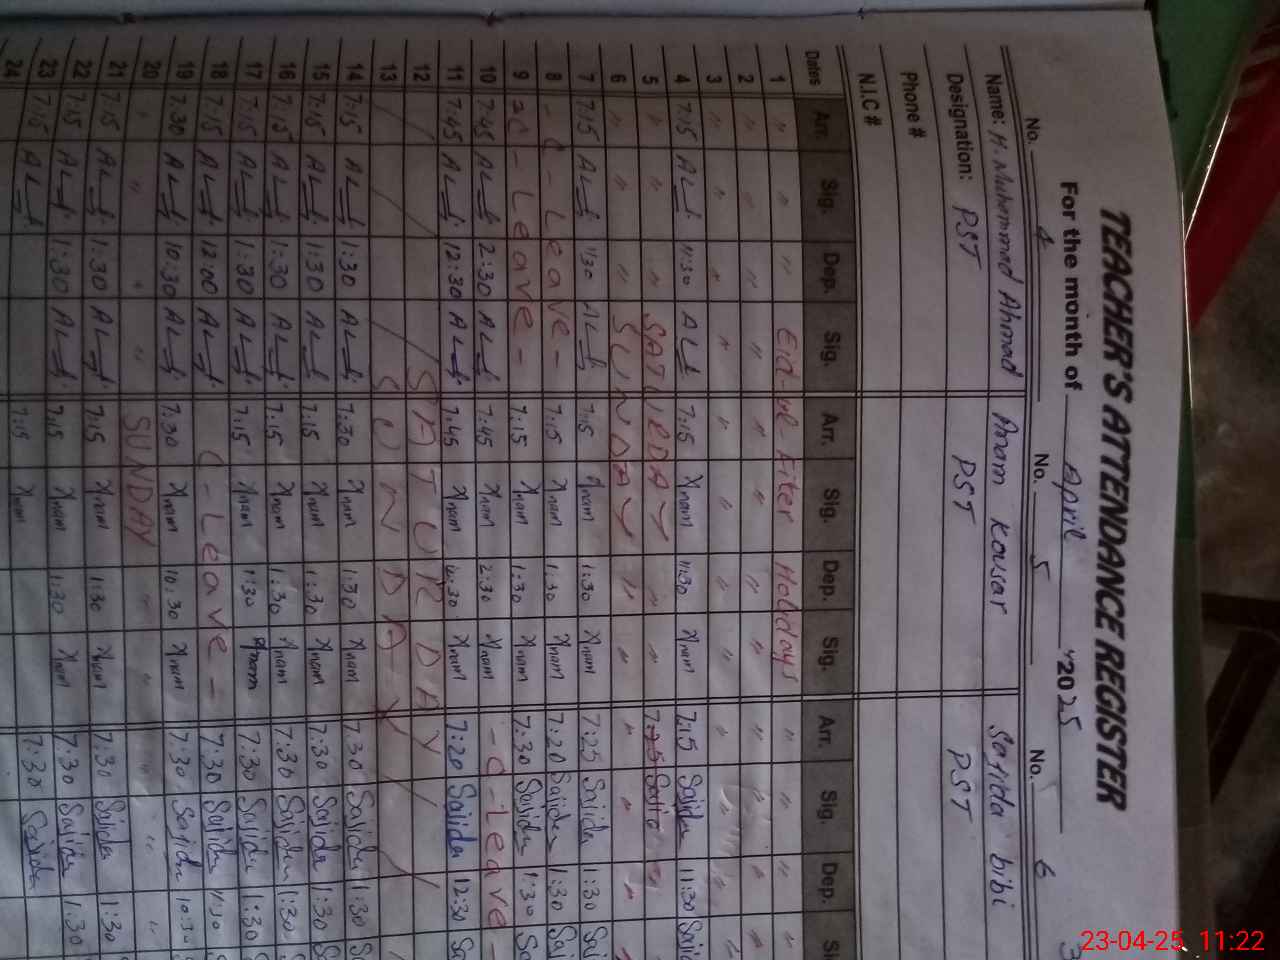 TEACHER'S ATTENDANCE REGISTER
For the month of April 2025
No. 4 No. 5 No. 6
Name: M. Muhammad Ahmad Anam Kousar Sajida bibi
Designation: PST PST PST
Phone #
N.I.C #
Dates Arr. Sig. Dep. Sig. Arr. Sig. Dep. Sig. Arr. Sig. Dep. Si
1 " " " Eid-ul-Fiter Holidays " " " "
2 " " " " " " " " " " " "
3 " " " " " " " "
4 7:15 11:30 7:15 Anam 11:30 Anam 7:15 Sajida 11:30 Sajid
5 " " " SATURDAY " " 7:25
6 " " " SUNDAY " " " " "
7 7:15 1:30 7:15 Anam 1:30 Anam 7:25 Sajida 1:30 Saj
8 - C - Leave - 7:15 Anam 1:30 Anam 7:20 Sajida 1:30 Saj
9 C - Leave - 7:15 Anam 1:30 Anam 7:30 Sajida 1:30 Sa
10 7:45 2:30 7:45 Anam 2:30 Anam - C - Leave -
11 7:45 12:30 7:45 Anam 12:30 Anam 7:20 Sajida 12:30 Sa
12 SATURDAY
13 SUNDAY
14 7:15 1:30 7:30 Anam 1:30 Anam 7:30 Sajida 1:30 Sa
15 7:15 1:30 7:15 Anam 1:30 Anam 7:30 Sajida 1:30 S
16 7:15 1:30 7:15 Anam 1:30 Anam 7:30 Sajida 1:30
17 7:15 1:30 7:15 Anam 1:30 Anam 7:30 Sajida 1:30
18 7:15 12:00 C - Leave - 7:30 Sajida 1:30
19 7:30 10:30 7:30 Anam 10:30 Anam 7:30 Sajida 10:30
20 " " " " SUNDAY " " " " "
21 7:15 1:30 7:15 Anam 1:30 Anam 7:30 Sajida 1:30
22 7:15 1:30 7:15 Anam 1:30 Anam 7:30 Sajida 1:30
23 7:15 7:15 Anam 7:30 Sajida
24
23-04-25 11:22